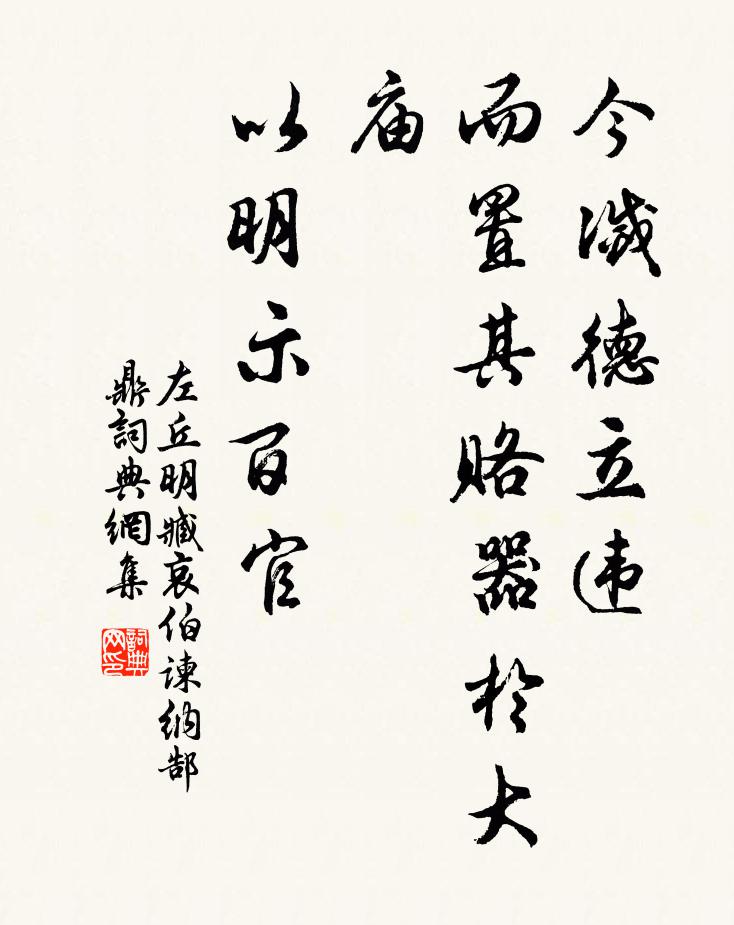 今滅德立违
而置其賂器於大
庙
以明示百官
左丘明臧哀伯諫納郜
鼎詞典網集
詞典
网印